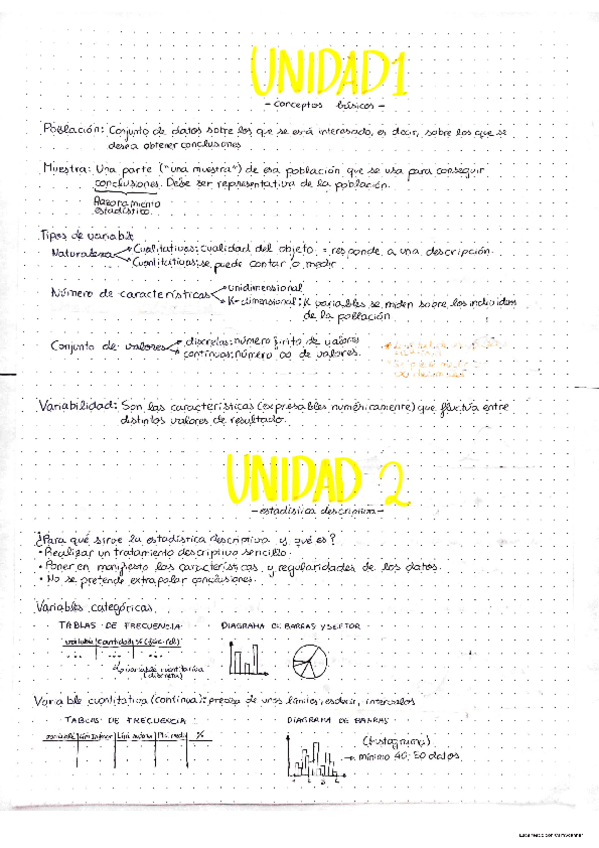 UNIDAD 1
- conceptos básicos -
Población: Conjunto de datos sobre los que se está interesado, es decir, sobre los que se
desea obtener conclusiones
Muestra: Una parte ("una muestra") de esa población que se usa para conseguir
conclusiones. Debe ser representativa de la población.
Razonamiento
estadístico.
Tipos de variable
Naturaleza Cualitativas: cualidad del objeto = responde a una descripción
Cuantitativas: se puede contar o medir
Número de características unidimensional
K-dimensional: K variables se miden sobre los individuos
de la población
Conjunto de valores discretas: número finito de valores
continuas: número ∞ de valores.
Variabilidad: Son las características (expresables numéricamente) que fluctúa entre
distintos valores de resultado.
UNIDAD 2
- estadística descriptiva -
¿Para qué sirve la estadística descriptiva y qué es?
• Realizar un tratamiento descriptivo sencillo.
• Poner en manifiesto las características y regularidades de los datos.
• No se pretende extrapolar conclusiones.
Variables categóricas
TABLAS DE FRECUENCIA DIAGRAMA DE BARRAS Y SECTOR
variable cantidad %
variable cuantitativa
(discreta)
Variable cuantitativa (continua): precisa de unos límites, es decir, intervalos
TABLAS DE FRECUENCIA DIAGRAMA DE BARRAS
%
(histograma)
→ mínimo 40, 50 datos